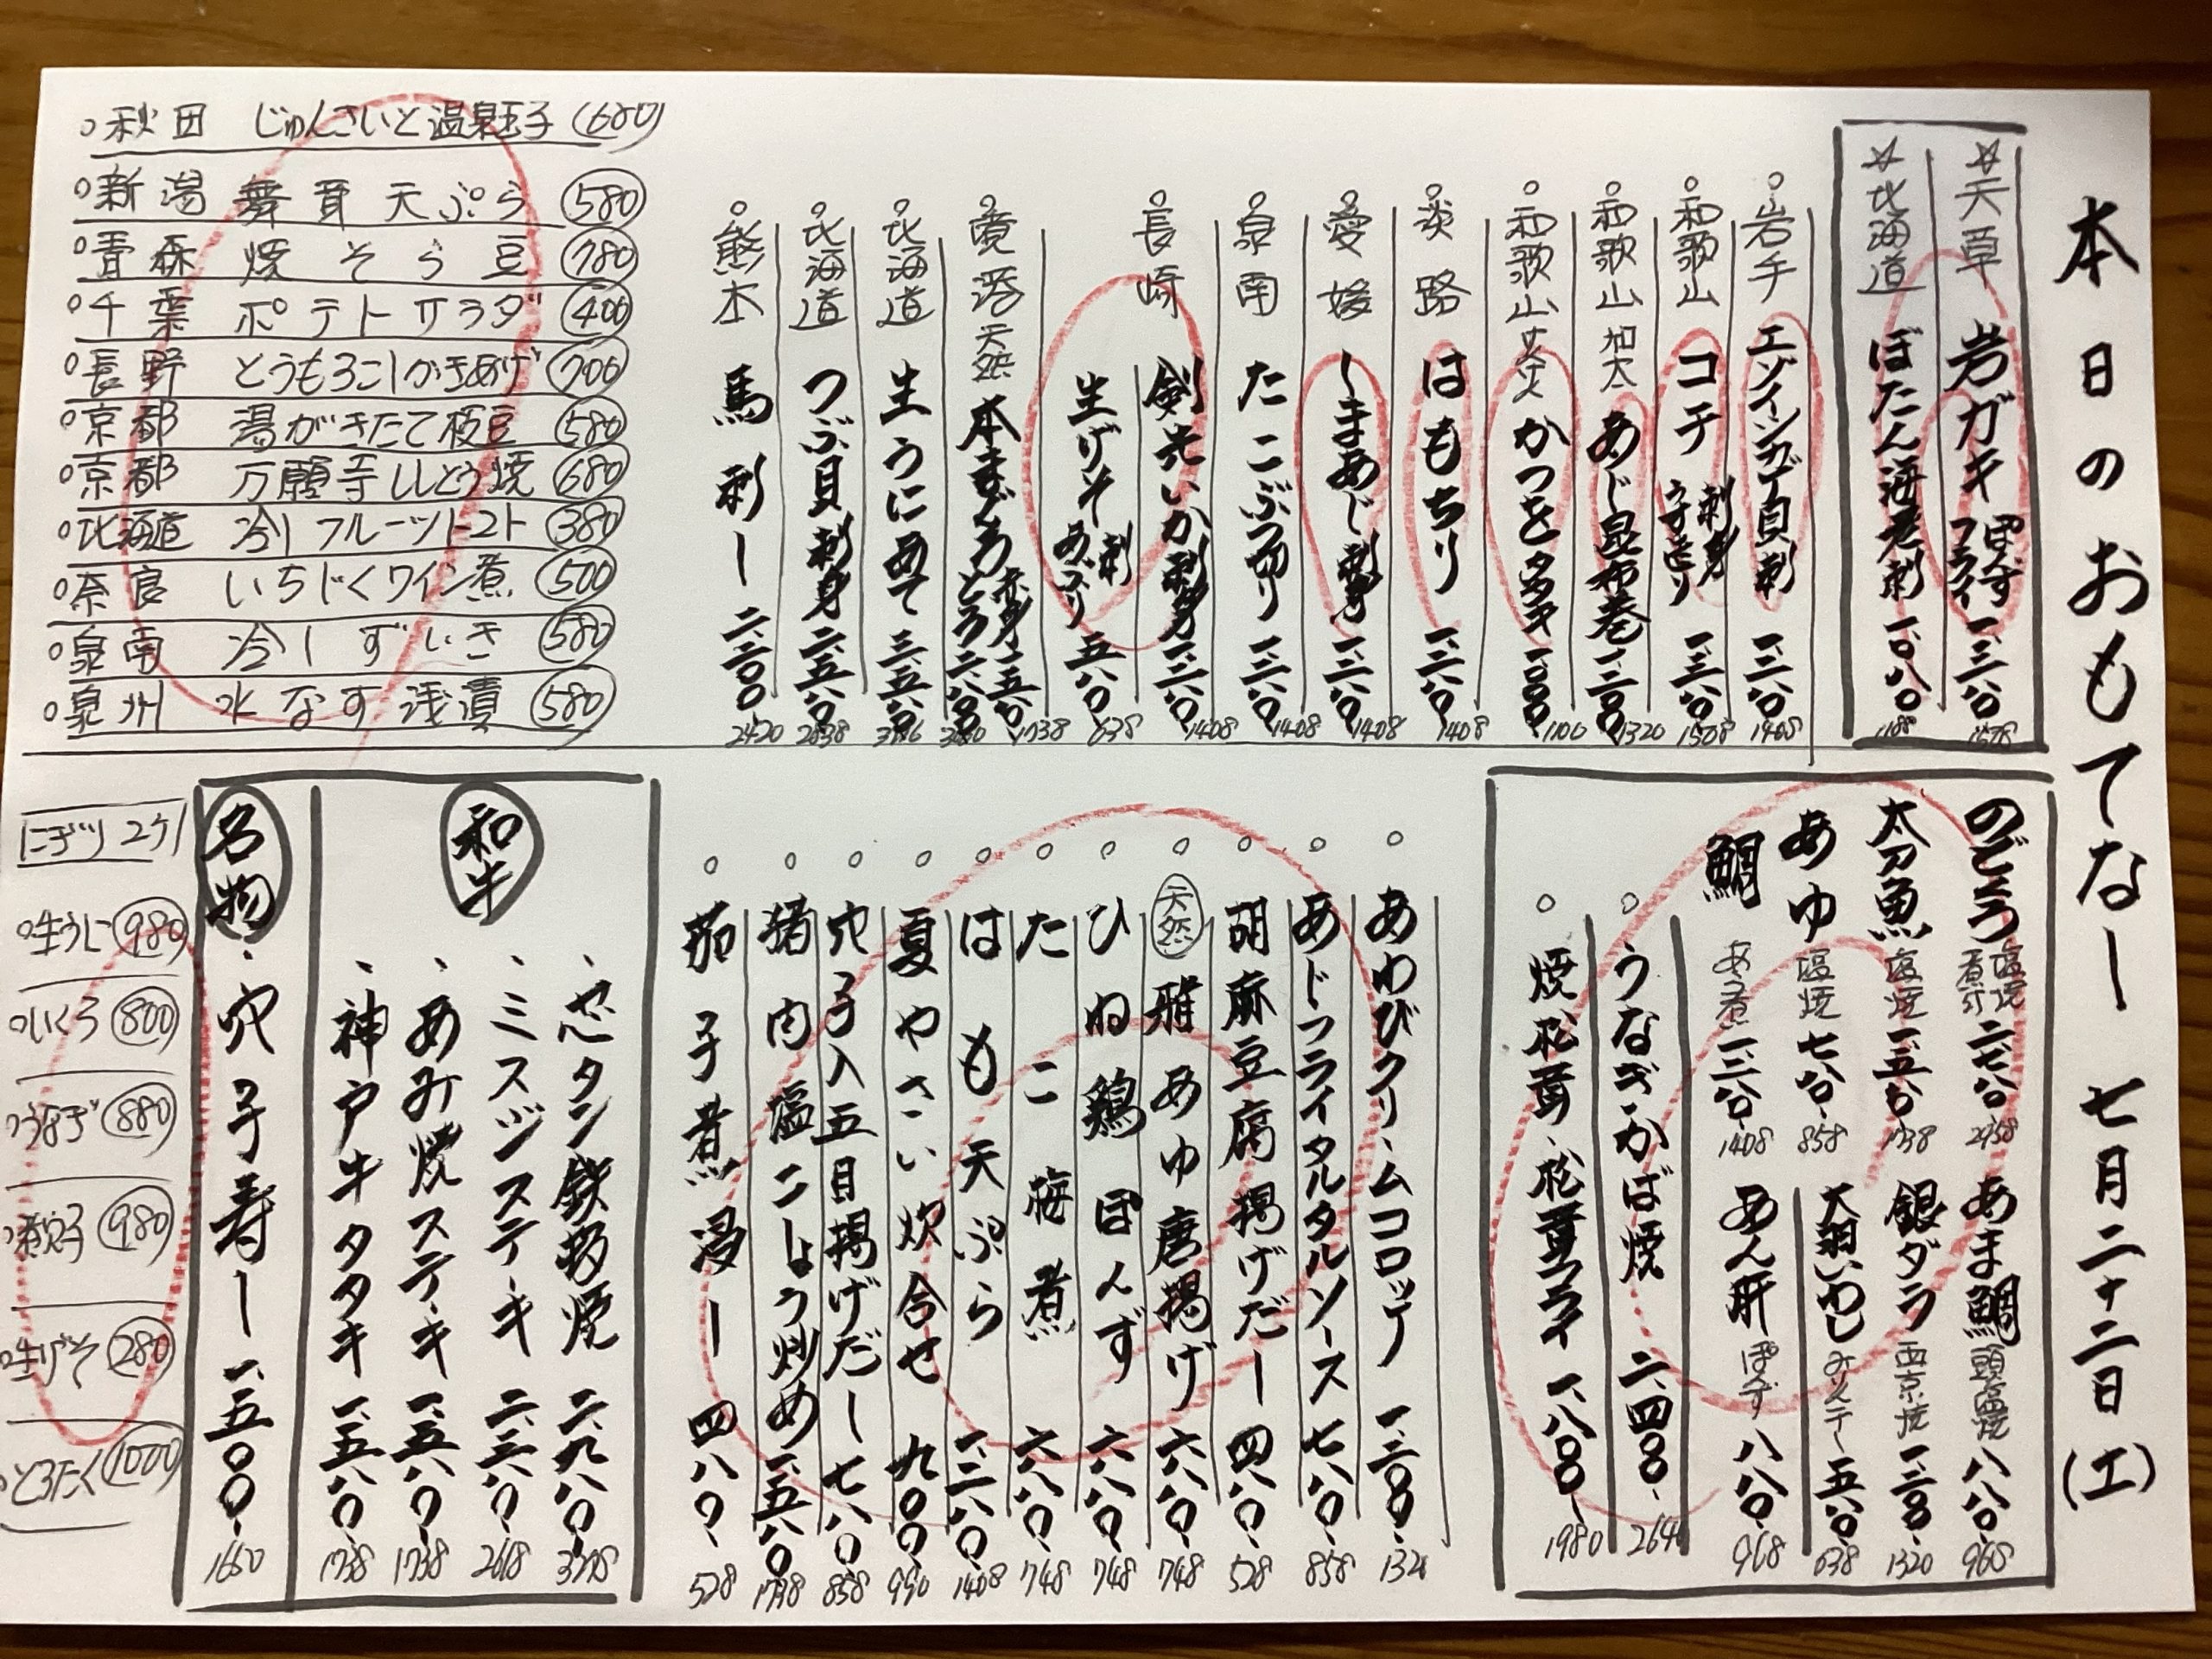 本日のおもてなし 七月二十二日(土)
☆天草 岩ガキ ぽんず フライ 一、三八〇
☆北海道 ぼたん海老刺 一、〇八〇 1188
○岩手 エゾイシガゲ貝刺 一、二八〇 1408
○和歌山 コチ 刺身 一、三八〇 1508
○和歌山 加太 あじ昆布巻 一、二〇〇 1320
○和歌山 かつをタタキ 一、〇〇〇 1100
○淡路 はもちり 一、二八〇 1408
○愛媛 しまあじ刺身 一、二八〇 1408
○泉南 たこぶつ切り 一、二八〇 1408
○長崎 剣先いか刺身 一、二八〇 1408
生げそ 刺 あぶり 五八〇 638
○境港 天然 本まぐろ 赤身 一、五八〇 1738
とろ 二、八〇〇 3080
○北海道 生うにあて 三、五八〇
○北海道 つぶ貝刺身 二、五八〇 2838
○熊本 馬刺し 二、二〇〇 2420
○秋田 じゅんさいと温泉玉子 680
○新潟 舞茸天ぷら 580
○青森 焼そら豆 780
○千葉 ポテトサラダ 400
○長野 とうもろこしかきあげ 700
○京都 湯がきたて枝豆 580
○京都 万願寺ししとう焼 680
○北海道 冷しフルーツトマト 380
○奈良 いちじくワイン煮 500
○泉南 冷しずいき 580
○泉州 水なす浅漬 580
のどぐろ 塩焼 煮汁 二、七八〇 2958
あま鯛 頭塩焼 八八〇 968
太刀魚 塩焼 一、五八〇 1738
銀ダラ 西京焼 一、二〇〇 1320
あゆ 塩焼 七八〇 858
大羽いわし みりん干し 五八〇 638
鯛 あら煮 一、二八〇 1408
あん肝 ぽんず 八八〇 968
○うなぎ・かば焼 二、四〇〇 2640
○焼松茸、松茸フライ 一、八〇〇 1980
○あわびクリームコロッケ 一、二〇〇 1320
○あドフライタルタルソース 七八〇 858
○胡麻豆腐揚げだし 四八〇 528
○天然 稚あゆ唐揚げ 六八〇 748
○ひね鶏ぽんず 六八〇 748
○たこ梅煮 六八〇 748
○はも天ぷら 一、二八〇 1408
○夏やさい炊合せ 九〇〇 990
○穴子入五目揚げだし 七八〇 858
○猪肉塩こしょう炒め 一、五八〇 1738
○茄子煮浸し 四八〇 528
和牛
、芯タン鉄砲焼 二、九八〇 3278
、ミスジステーキ 二、三八〇 2618
、あみ焼ステーキ 一、五八〇 1738
、神戸牛タタキ 一、五八〇 1738
名物
、穴子寿し 一、五〇〇 1650
にぎり2ケ
○生うに 980
○いくら 800
○うなぎ 880
○煮穴子 980
○生げそ 280
○とろたく 1000